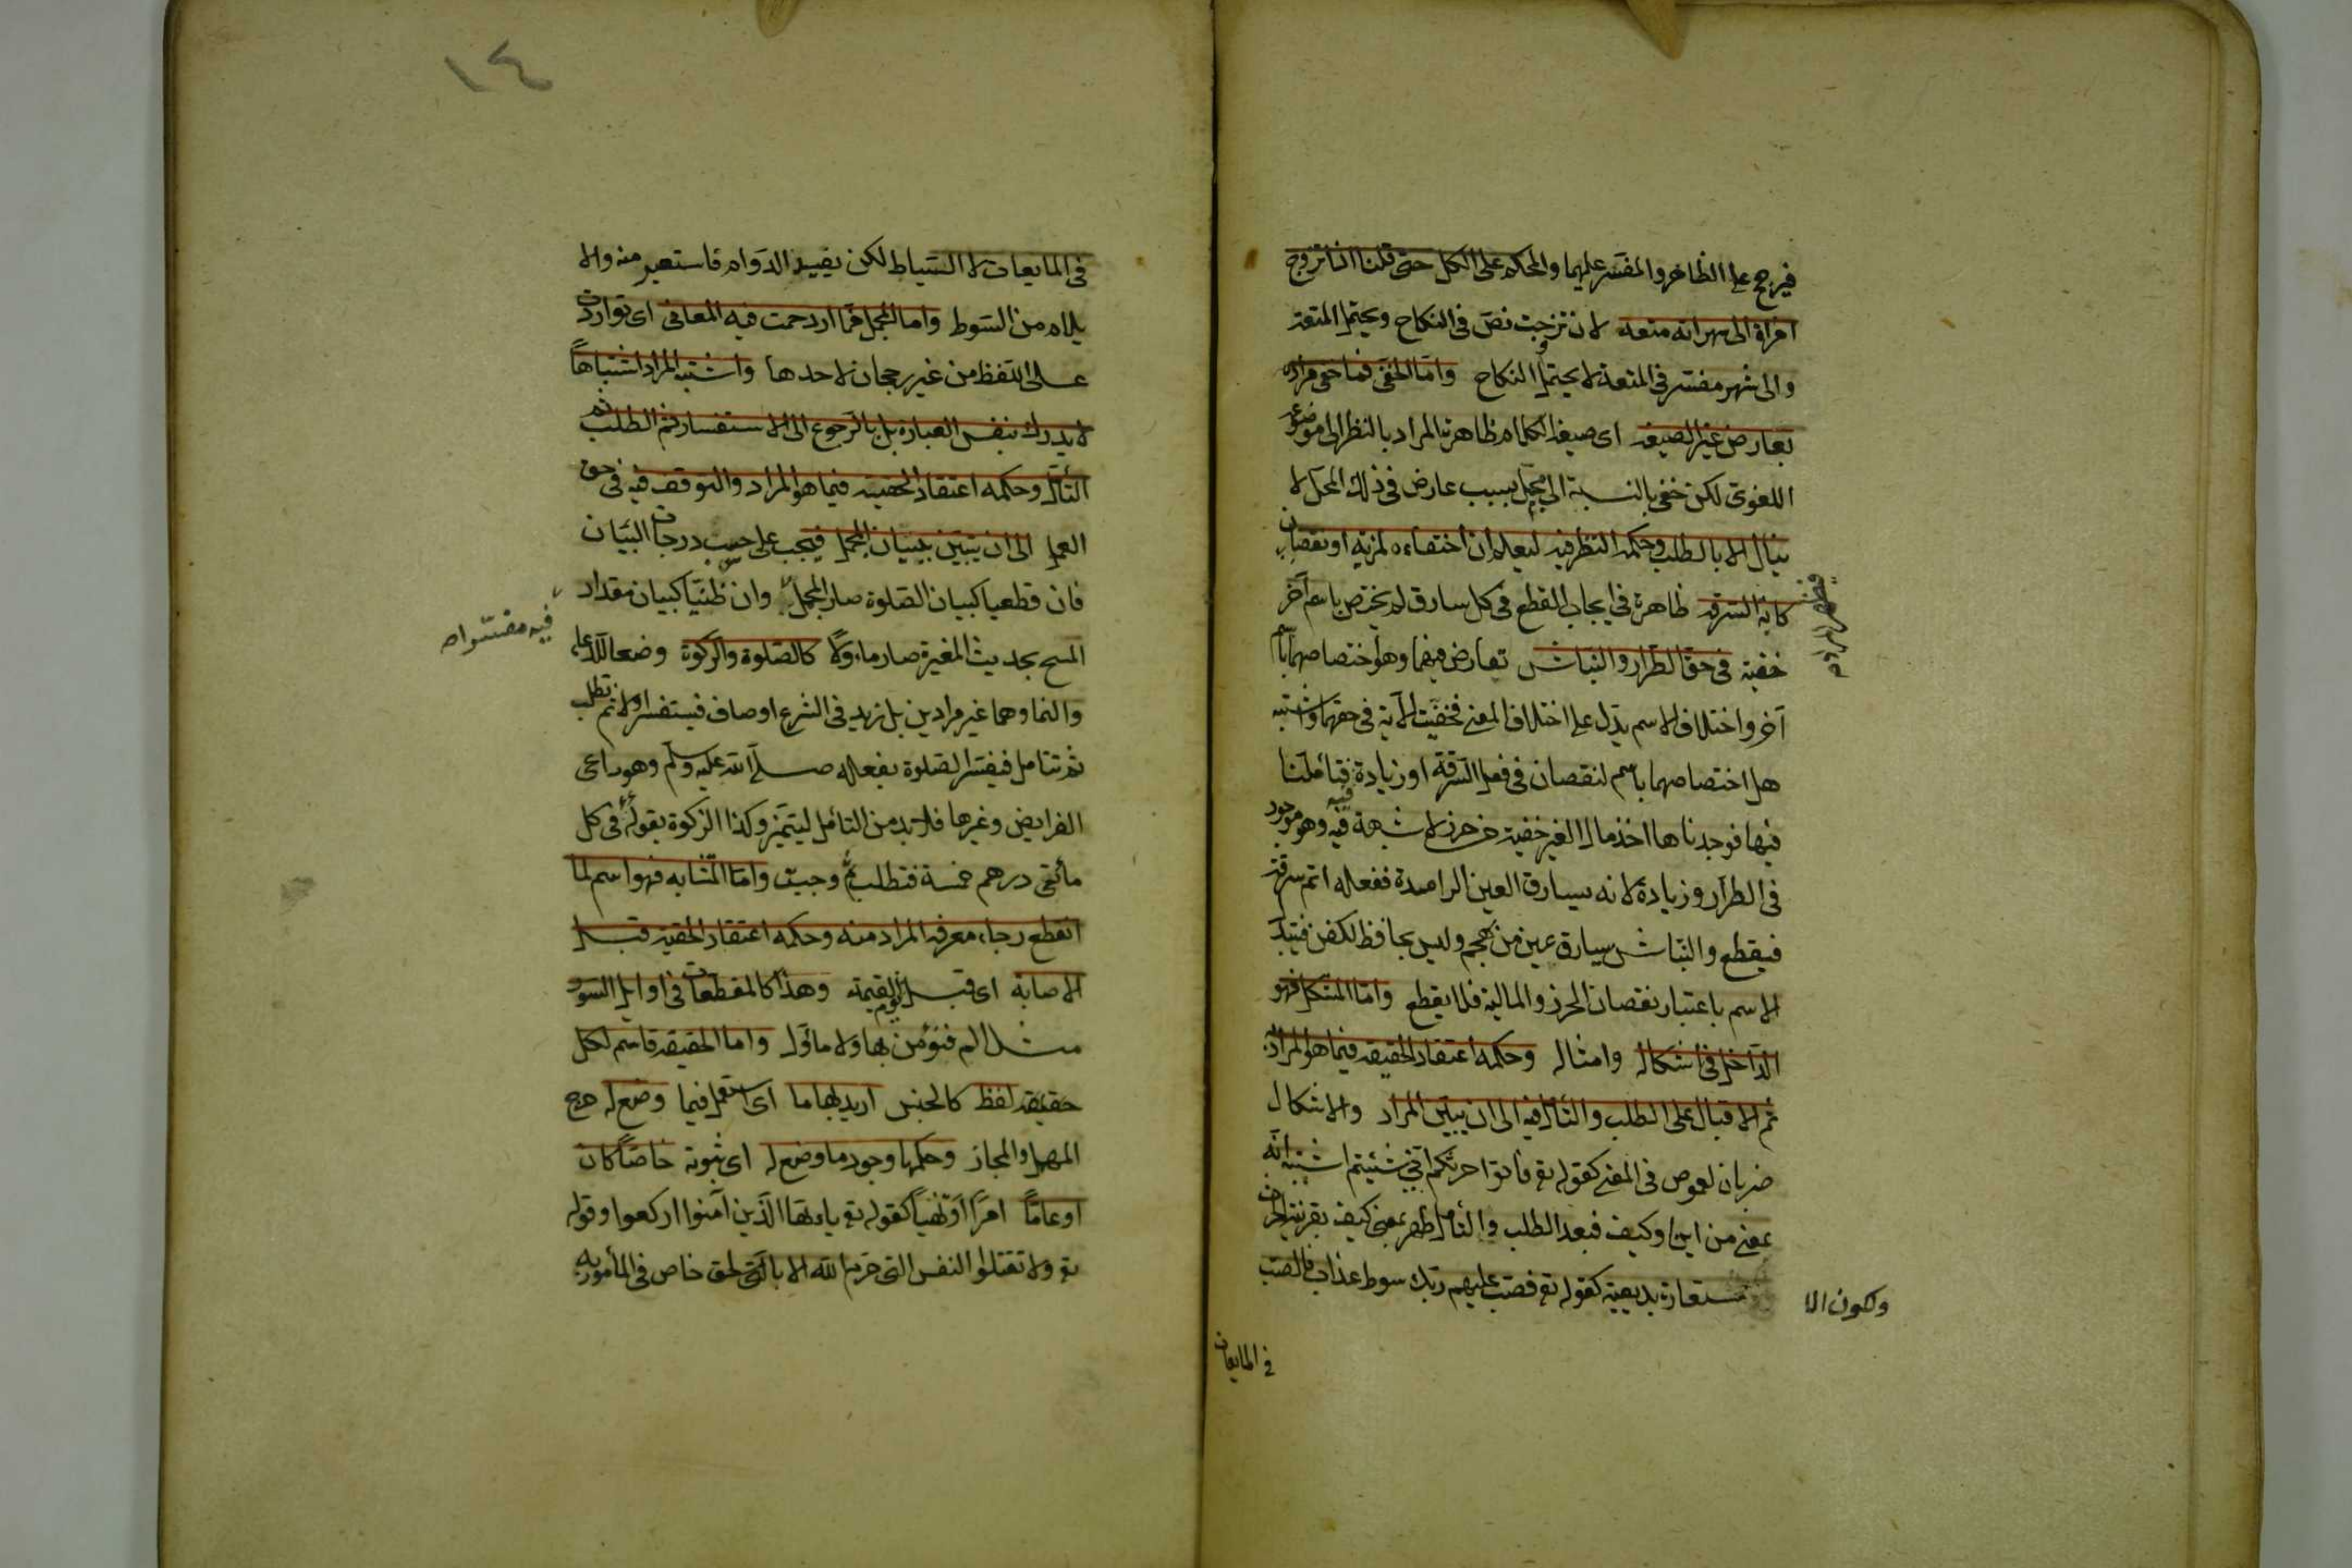 فيرجح على الظاهر والمفسر عليهما والمحكم على الكل حتى قلنا اذا تزوج
امراة الى شهر انه متعه لان تزوجت نص فى النكاح ويحتمل المتعة
والى شهر مفسر فى المتعة لا يحتمل النكاح واما الخفى فما خفى مراده
بعارض غير الصيغة اى صيغة الكلام ظاهرة المراد بالنظر الى موضوعه
اللغوى لكن خفى بالنسبة الى محل بسبب عارض فى ذلك المحل لا
ينال الا بالطلب وحكمه النظر فيه ليعلم ان اختفاءه لمزية او نقصان
كاية السرقة ظاهرة فى ايجاب القطع فى كل سارق لم يختص باسم آخر
خفية فى حق الطرار والنباش تعارض فيهما وهو اختصاصهما باسم
آخر واختلاف الاسم يدل على اختلاف المعنى فخفيت الآية فى حقهما واشتبه
هل اختصاصهما باسم لنقصان فى فعل السرقة او زيادة فتأملنا
فيها فوجدناها اخذ مال الغير خفية من حرز لا شبهة فيه وهو موجود
فى الطرار وزيادة لانه يسارق العين الراصدة ففعله اتم سرقة
فيقطع والنباش يسارق عين من يهجم وليس بحافظ الكفن فتبدل
الاسم باعتبار نقصان الحرز والمالية فلا يقطع واما المشكل فهو
الداخل فى اشكاله وامثاله وحكمه اعتقاد الحقيقة فيما هو المراد به
ثم الاقبال على الطلب والتأمل فيه الى ان يبين المراد والاشكال
ضربان لغموض فى المعنى كقوله تع فاتوا حرثكم انى شئتم اشتبه انه
بمعنى من اين او كيف فبعد الطلب والتأمل ظهر بمعنى كيف بقرينة الحرث
ولكون الا
ستعارة بديعية كقوله تع فصب عليهم ربك سوط عذاب فالصب
فى المايعات
١٤
فى المايعات لا السياط لكن يفيد الدوام فاستعير منه والا
يلام من السوط واما المجمل فما ازدحمت فيه المعانى اى تواردت
على اللفظ من غير رجحان لاحدها واشتبه المراد اشتباها
لا يدرك بنفس العبارة بل بالرجوع الى الاستفسار ثم الطلب ثم
التأمل وحكمه اعتقاد الحقية فيما هو المراد والتوقف فيه فى حق
العمل الى ان يتبين ببيان المجمل فيجب على حسب درجات البيان
فان قطعيا كبيان الصلوة صار المجمل وان ظنيا كبيان مقدار
فيه مفسرا صح
المسح بحديث المغيرة صار مأولا كالصلوة والزكوة وضعا للدعاء
والنما وهما غير مرادين بل زيد فى الشرع اوصاف فيستفسر اولا ثم تطلب
ثم تتامل فيفسر الصلوة بفعله صلى الله عليه وسلم وهو راعى
الفرايض وغيرها فلا بد من التأمل ليتميز وكذا الزكوة بقوله فى كل
مأتى درهم خمسة فتطلب وجبت واما المتشابه فهو اسم لما
انقطع رجاء معرفة المراد منه وحكمه اعتقاد الحقية قبل
الاصابة اى قبل يوم القيمة وهذا كالمقطعات فى اوايل السور
مثل الم فنؤمن بها ولا مأول واما الحقيقة فاسم لكل
حقيقة لفظ كالجنس اريد بها ما اى استعمل فيما وضع له خرج
المهمل والمجاز وحكمها وجود ما وضع له اى ثبوته خاصا كان
او عاما امرا او نهيا كقوله تع يا ايها الذين آمنوا اركعوا وقوله
تع ولا تقتلوا النفس التى حرم الله الا بالحق خاص فى المأمور به